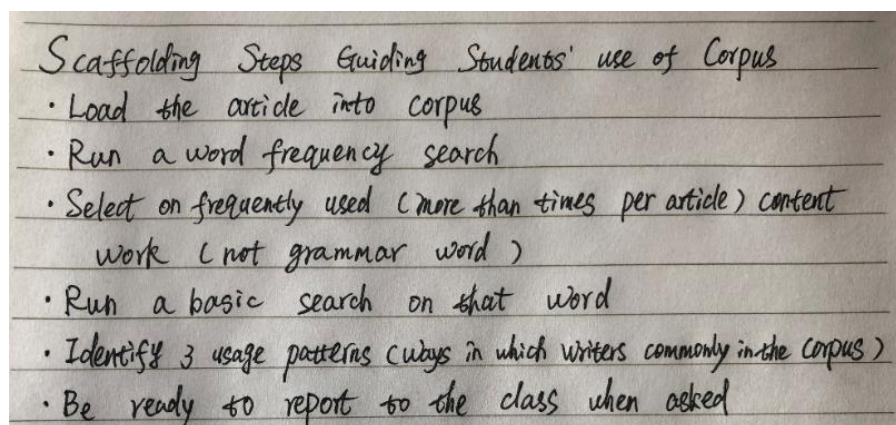 Scaffolding Steps Guiding Students' use of Corpus
· Load the article into corpus
· Run a word frequency search
· Select on frequently used (more than times per article) content
work (not grammar word)
· Run a basic search on that word
· Identify 3 usage patterns (ways in which writers commonly in the corpus)
· Be ready to report to the class when asked